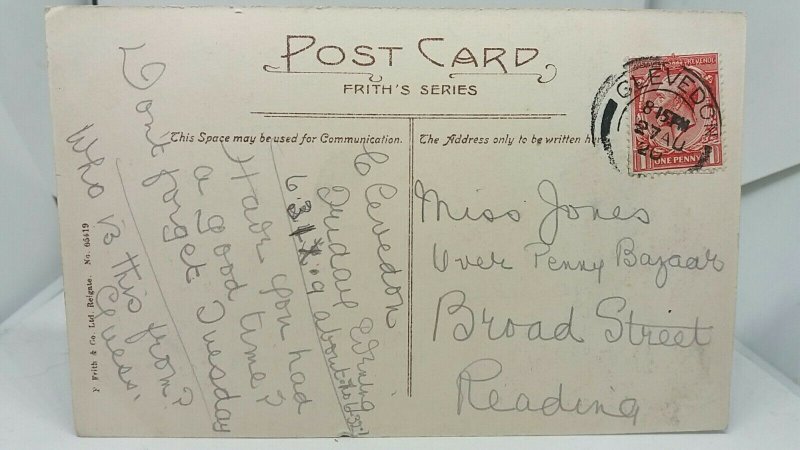 POST CARD
FRITH'S SERIES
This Space may be used for Communication.
The Address only to be written
CLEVEDON
815PM
27 AU
ONE PENNY
Clevedon
Friday Evening
Have you had
a good time?
Don't forget Tuesday
Who is this from?
Guess.
Miss Jones
Over Penny Bazaar
Broad Street
Reading
F Frith & Co. Ltd. Reigate. No. 65419